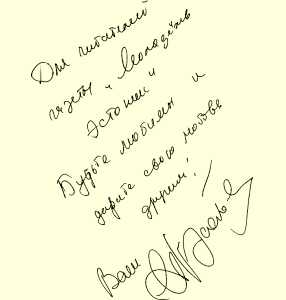 Для читателей
газеты "Молодёжь
Эстонии"
Будьте любимы и
дарите свою любовь
другим!
Ваш